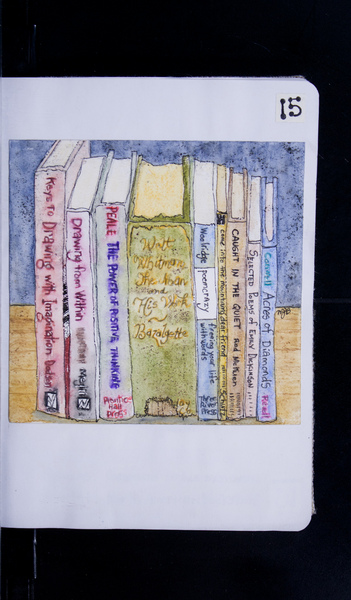 15
Keys To Drawing with Imagination Dodson
Drawing from Within
PEALE THE POWER OF POSITIVE THINKING
Prentice
Hall
Press
Walt
Whitman
The Man
and
His Work
Bazalgette
Wooldridge poemcrazy
freeing your life
with words
CAUGHT IN THE QUIET Rod McKuen
SELECTED POEMS OF EMILY DICKINSON
Conwell Acres of Diamonds